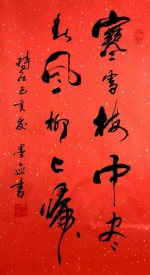 寒雪梅中尽
春风柳上归
时在己亥友墨迹书